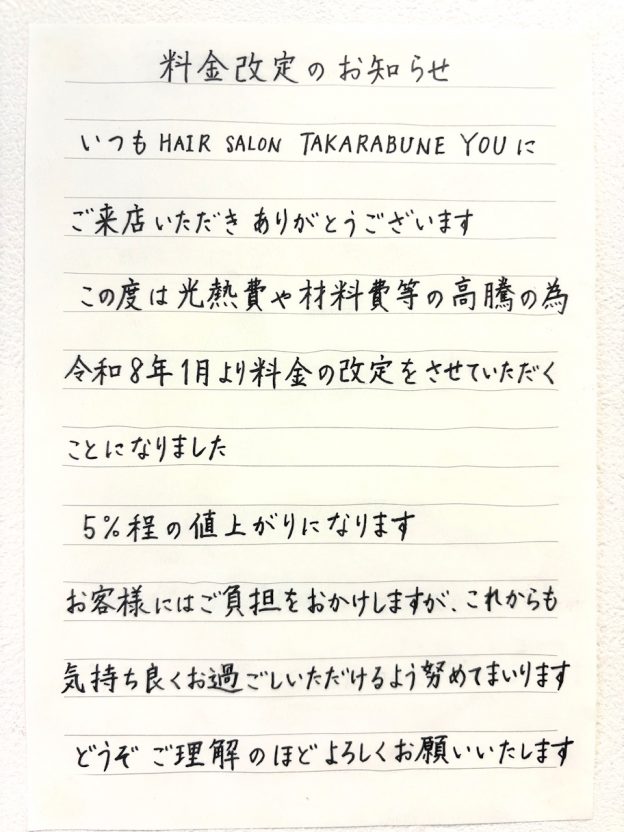 料金改定のお知らせ
いつも HAIR SALON TAKARABUNE YOU に
ご来店いただき ありがとうございます
この度は光熱費や材料費等の高騰の為
令和8年1月より料金の改定をさせていただく
ことになりました
5%程の値上がりになります
お客様にはご負担をおかけしますが、これからも
気持ち良くお過ごしいただけるよう努めてまいります
どうぞ ご理解のほど よろしくお願いいたします